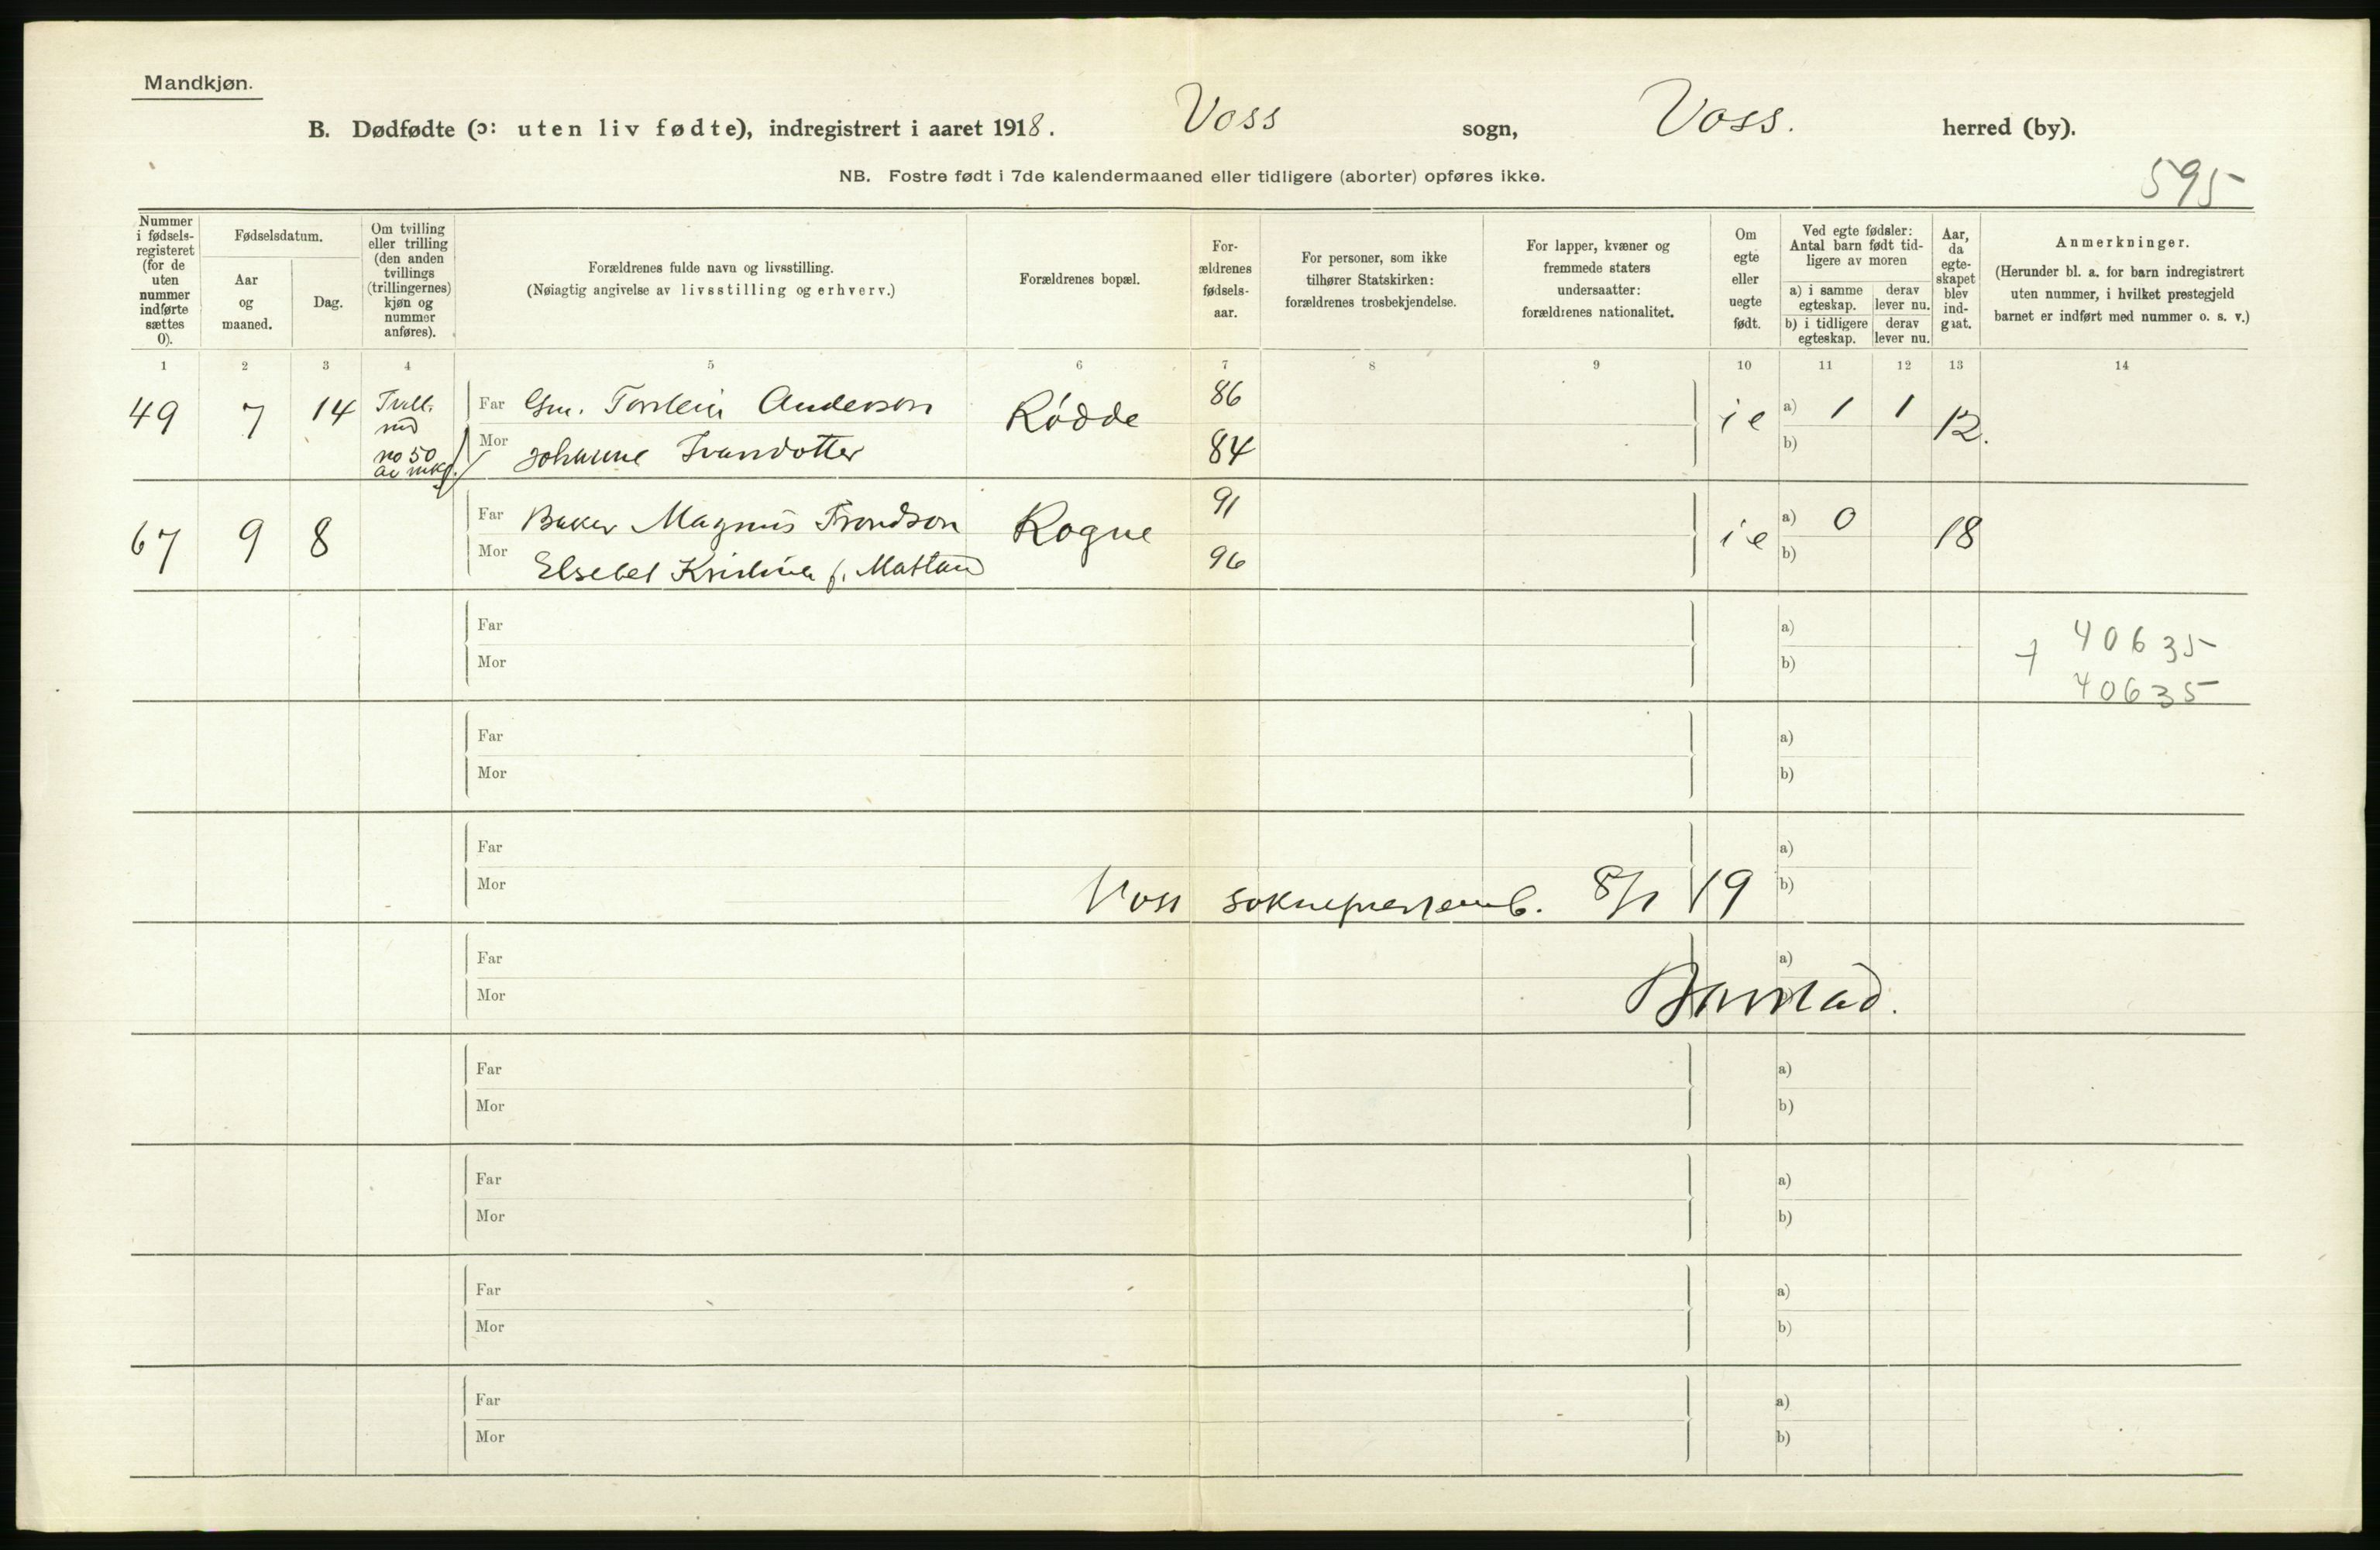 Mandkjøn.
B. Dødfødte (ɔ: uten liv fødte), indregistrert i aaret 1918. Voss sogn, Voss. herred (by).
NB. Fostre født i 7de kalendermaaned eller tidligere (aborter) opføres ikke.
595
Nummer i fødsels-registeret (for de uten nummer indførte sættes 0).
Fødselsdatum.
Aar og maaned.
Dag.
Om tvilling eller trilling (den anden tvillings (trillingernes) kjøn og nummer anføres).
Forældrenes fulde navn og livsstilling.
(Nøiagtig angivelse av livsstilling og erhverv.)
Forældrenes bopæl.
For-ældrenes fødsels-aar.
For personer, som ikke tilhører Statskirken: forældrenes trosbekjendelse.
For lapper, kvæner og fremmede staters undersaatter: forældrenes nationalitet.
Om egte eller uegte født.
Ved egte fødsler: Antal barn født tid-ligere av moren
a) i samme egteskap. derav lever nu.
b) i tidligere egteskap. derav lever nu.
Aar, da egte-skapet blev ind-gaat.
Anmerkninger.
(Herunder bl. a. for barn indregistrert uten nummer, i hvilket prestegjeld barnet er indført med nummer o. s. v.)
1 2 3 4 5 6 7 8 9 10 11 12 13 14
49 7 14 Tvill. Far Gm. Torstein Anderson Rødde 86 i e a) 1 1 12.
no 50 av mkj. Mor Johanne Ivarsdotter 84 b)
67 9 8 Far Baker Magnus Trondson Rogne 91 i e a) 0 18
Mor Elsebet Kristine f. 96 b)
Far a) 40635
Mor b) 40635
Far a)
Mor b)
Far a)
Mor b)
Voss sokneprestemb. 8/1 19
Far a)
Mor
Far a)
Mor b)
Far a)
Mor b)
Far a)
Mor b)
Far a)
Mor b)